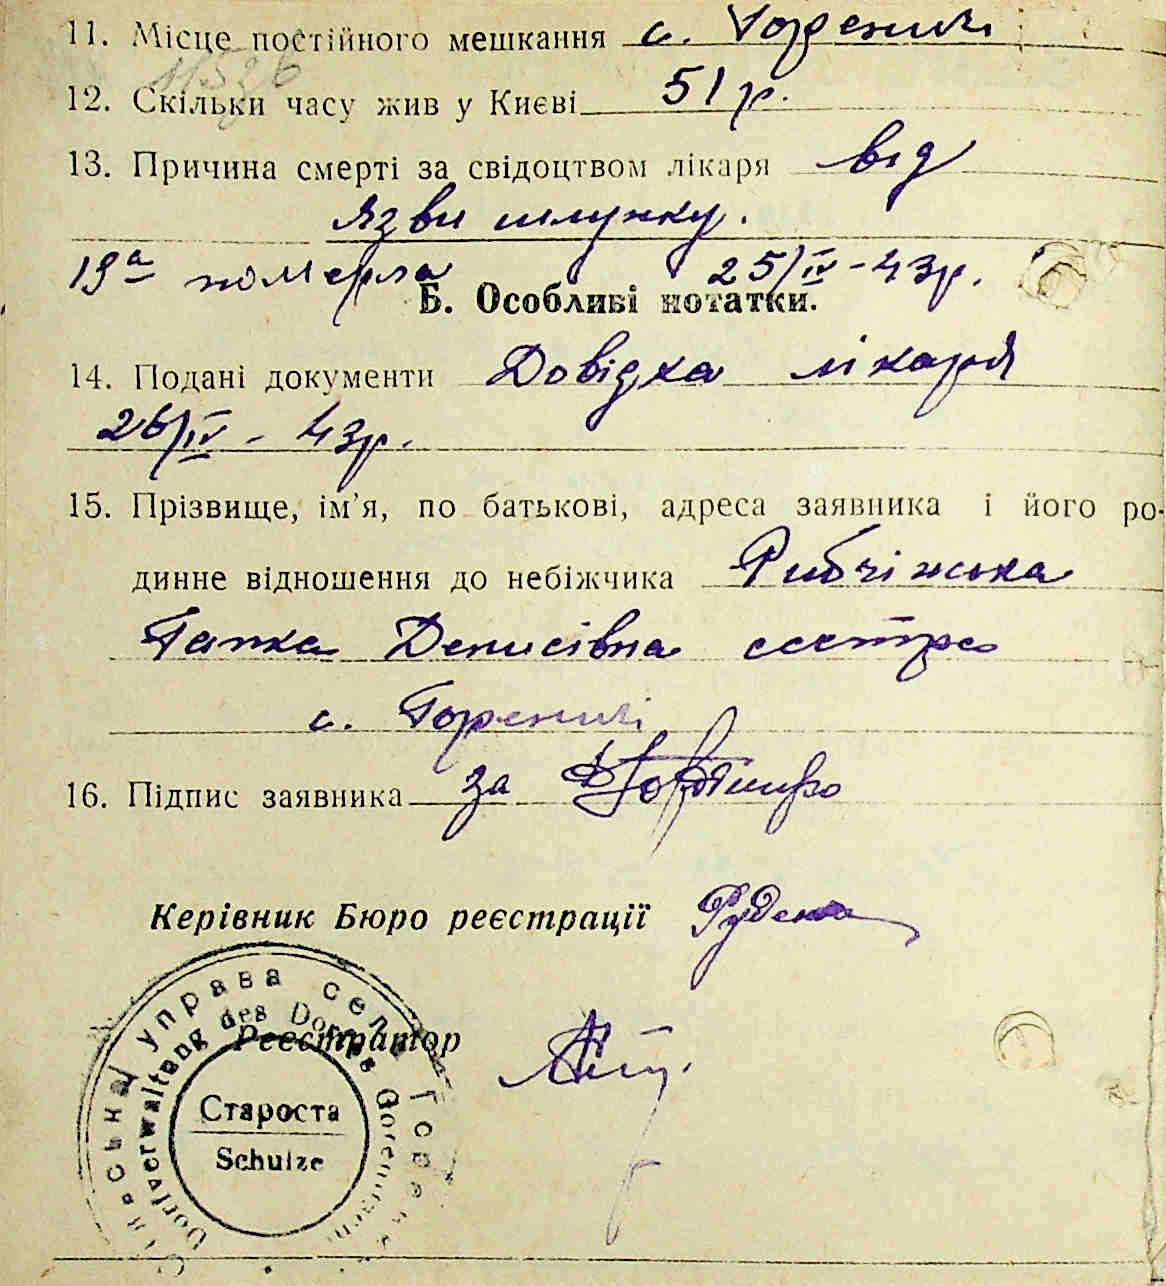 11. Місце постійного мешкання с. Гореничі
11526
12. Скільки часу жив у Києві 51 р.
13. Причина смерті за свідоцтвом лікаря від
язви шлунку.
19а померла 25/IV-43р.
Б. Особливі нотатки.
14. Подані документи Довідка лікаря
26/IV - 43р.
15. Прізвище, ім'я, по батькові, адреса заявника і його ро-
динне відношення до небіжчика Рибчінська
Гапка Денисівна сестра
с. Гореничі
16. Підпис заявника за
Керівник Бюро реєстрації
Реєстратор
Сільська управа села Горен
Dorfverwaltung des Dorfes Gorenitschi
Староста
Schulze